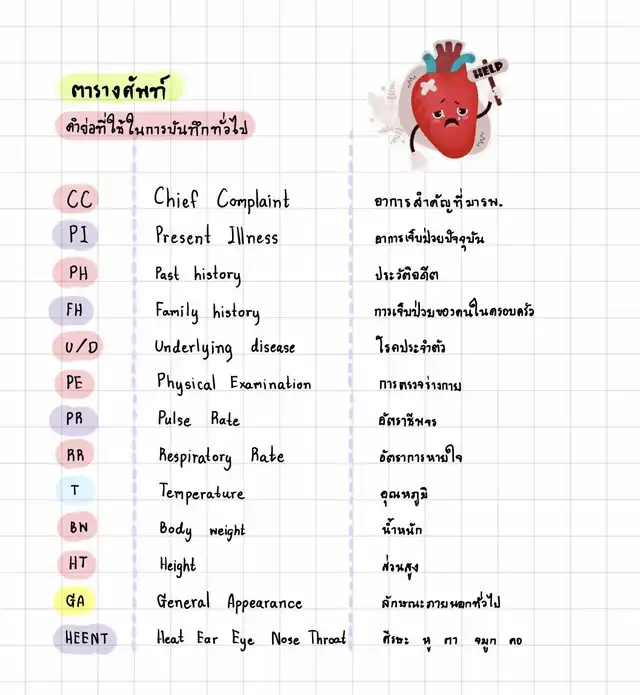 ตารางศัพท์
คำย่อที่ใช้ในการบันทึกทั่วไป
HELP
CC Chief Complaint อาการสำคัญที่มารพ.
PI Present Illness อาการเจ็บป่วยปัจจุบัน
PH Past history ประวัติอดีต
FH Family history การเจ็บป่วยของคนในครอบครัว
U/D Underlying disease โรคประจำตัว
PE Physical Examination การตรวจร่างกาย
PR Pulse Rate อัตราชีพจร
RR Respiratory Rate อัตราการหายใจ
T Temperature อุณหภูมิ
BW Body weight น้ำหนัก
HT Height ส่วนสูง
GA General Appearance ลักษณะภายนอกทั่วไป
HEENT Heat Ear Eye Nose Throat ศีรษะ หู ตา จมูก คอ